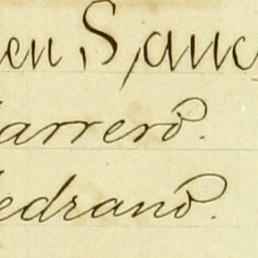 en Sanc
arrero.
edrano.